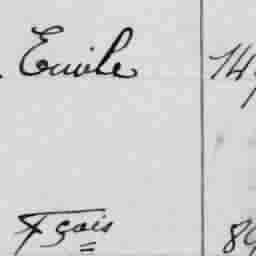 Emile 14
Fçois 89